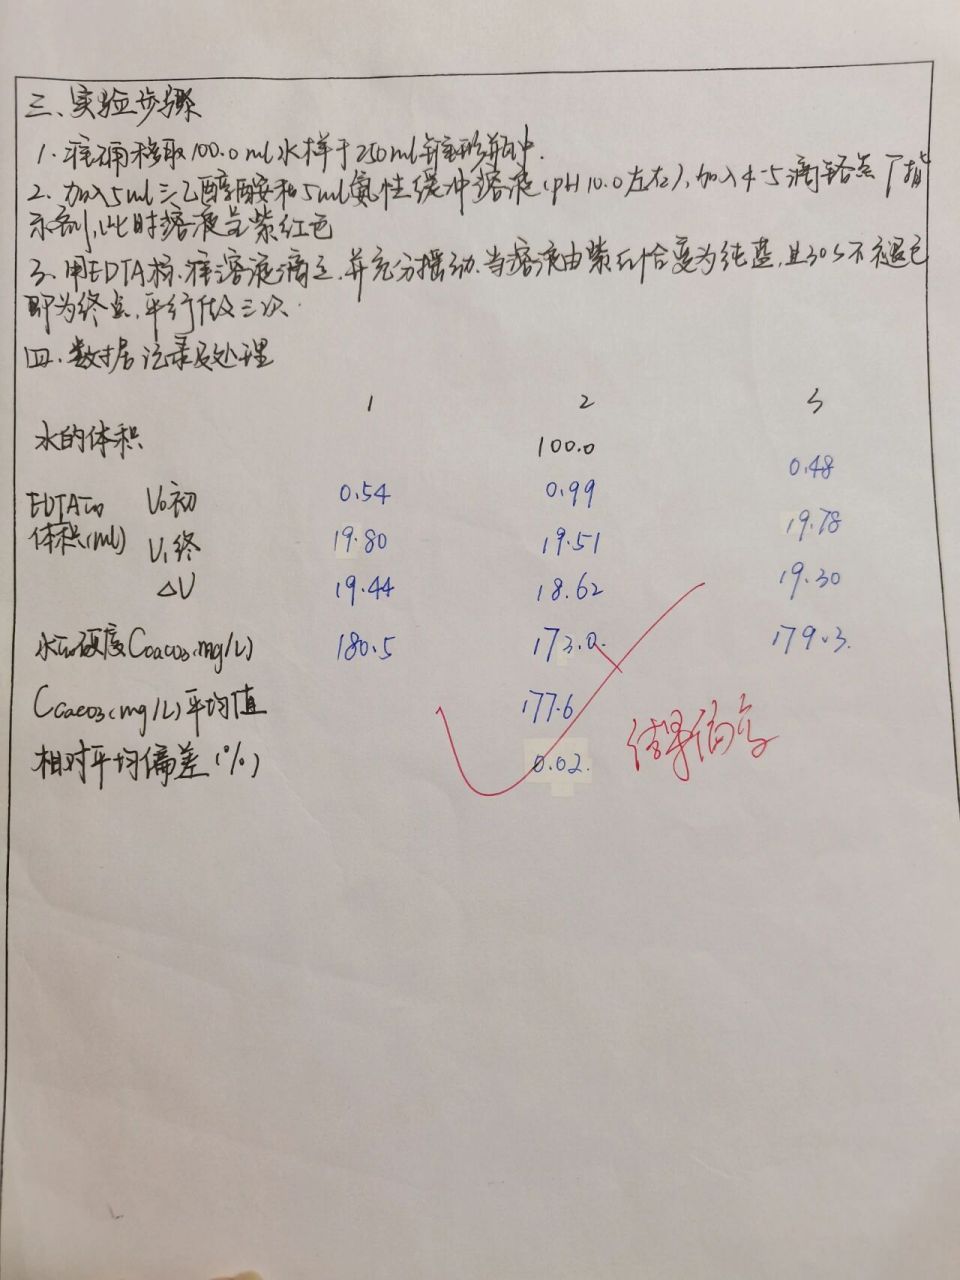 三、实验步骤
1. 准确移取100.0ml水样于250ml锥形瓶中.
2. 加入5ml三乙醇胺和5ml氨性缓冲溶液(pH 10.0左右),加入4-5滴铬黑T指
示剂,此时溶液呈紫红色
3. 用EDTA标准溶液滴定,并充分摇动,当溶液由紫红恰变为纯蓝,且30s不褪色
即为终点,平行做三次.
四、数据记录及处理
1 2 3
水的体积 100.0
EDTA的体积(ml) V₀初 0.54 0.99 0.48
V₁终 19.80 19.51 19.78
△V 19.44 18.62 19.30
水的硬度CCaCO3(mg/L) 180.5 173.0 179.3.
CCaCO3(mg/L)平均值 177.6
相对平均偏差(%) 0.02.
结果偏高